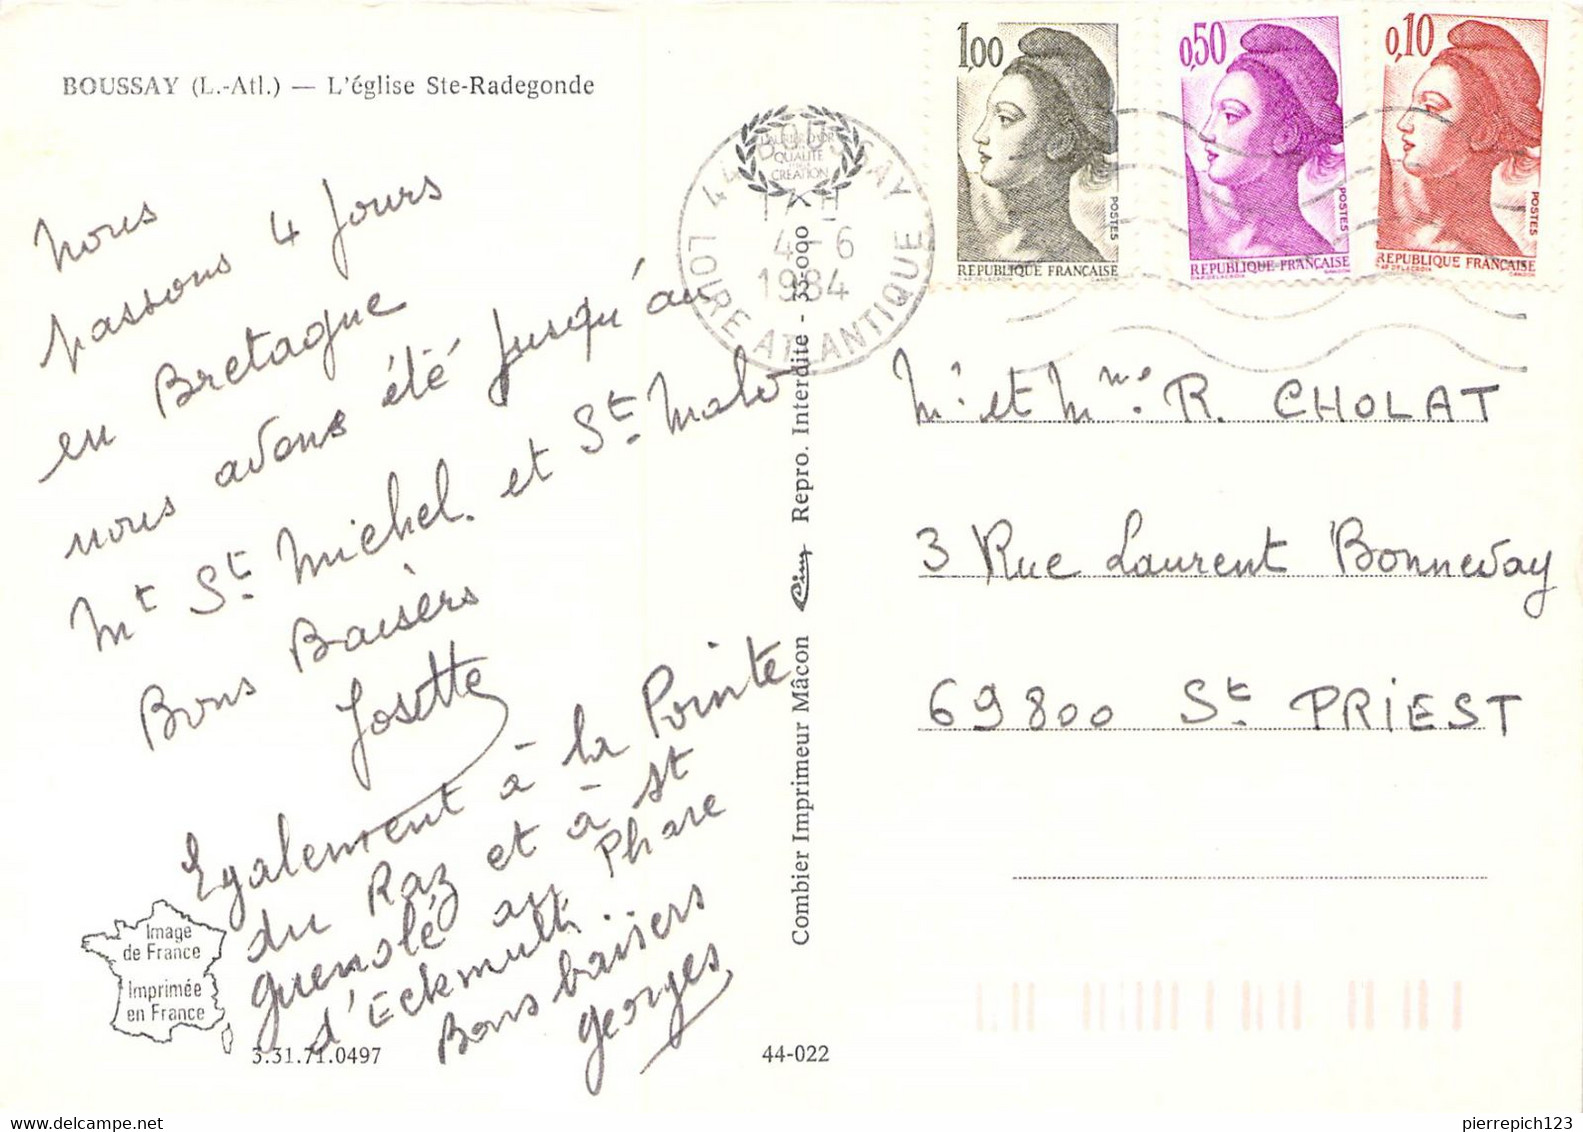 BOUSSAY (L.-Atl.) — L'église Ste-Radegonde
Nous
passons 4 Jours
en Bretagne
nous avons été Jusqu'au
Mt St. Michel. et St. Malo
Bons Baisers
Josette
Egalement à la Pointe
du Raz et à st
guenolé au Phare
d'Eckmulh.
Bons baisers
georges
Image
de France
Imprimée
en France
3.31.71.0497
44-022
Combier Imprimeur Mâcon Cim Repro. Interdite - 33-000
QUALITÉ
CRÉATION
44 BOUSSAY
4-6
1984
LOIRE ATLANTIQUE
1,00
POSTES
REPUBLIQUE FRANÇAISE
0,50
POSTES
REPUBLIQUE FRANÇAISE
0,10
POSTES
REPUBLIQUE FRANÇAISE
Mr et Mme. R. CHOLAT
3 Rue Laurent Bonnevay
69800 St. PRIEST
pierrepich123